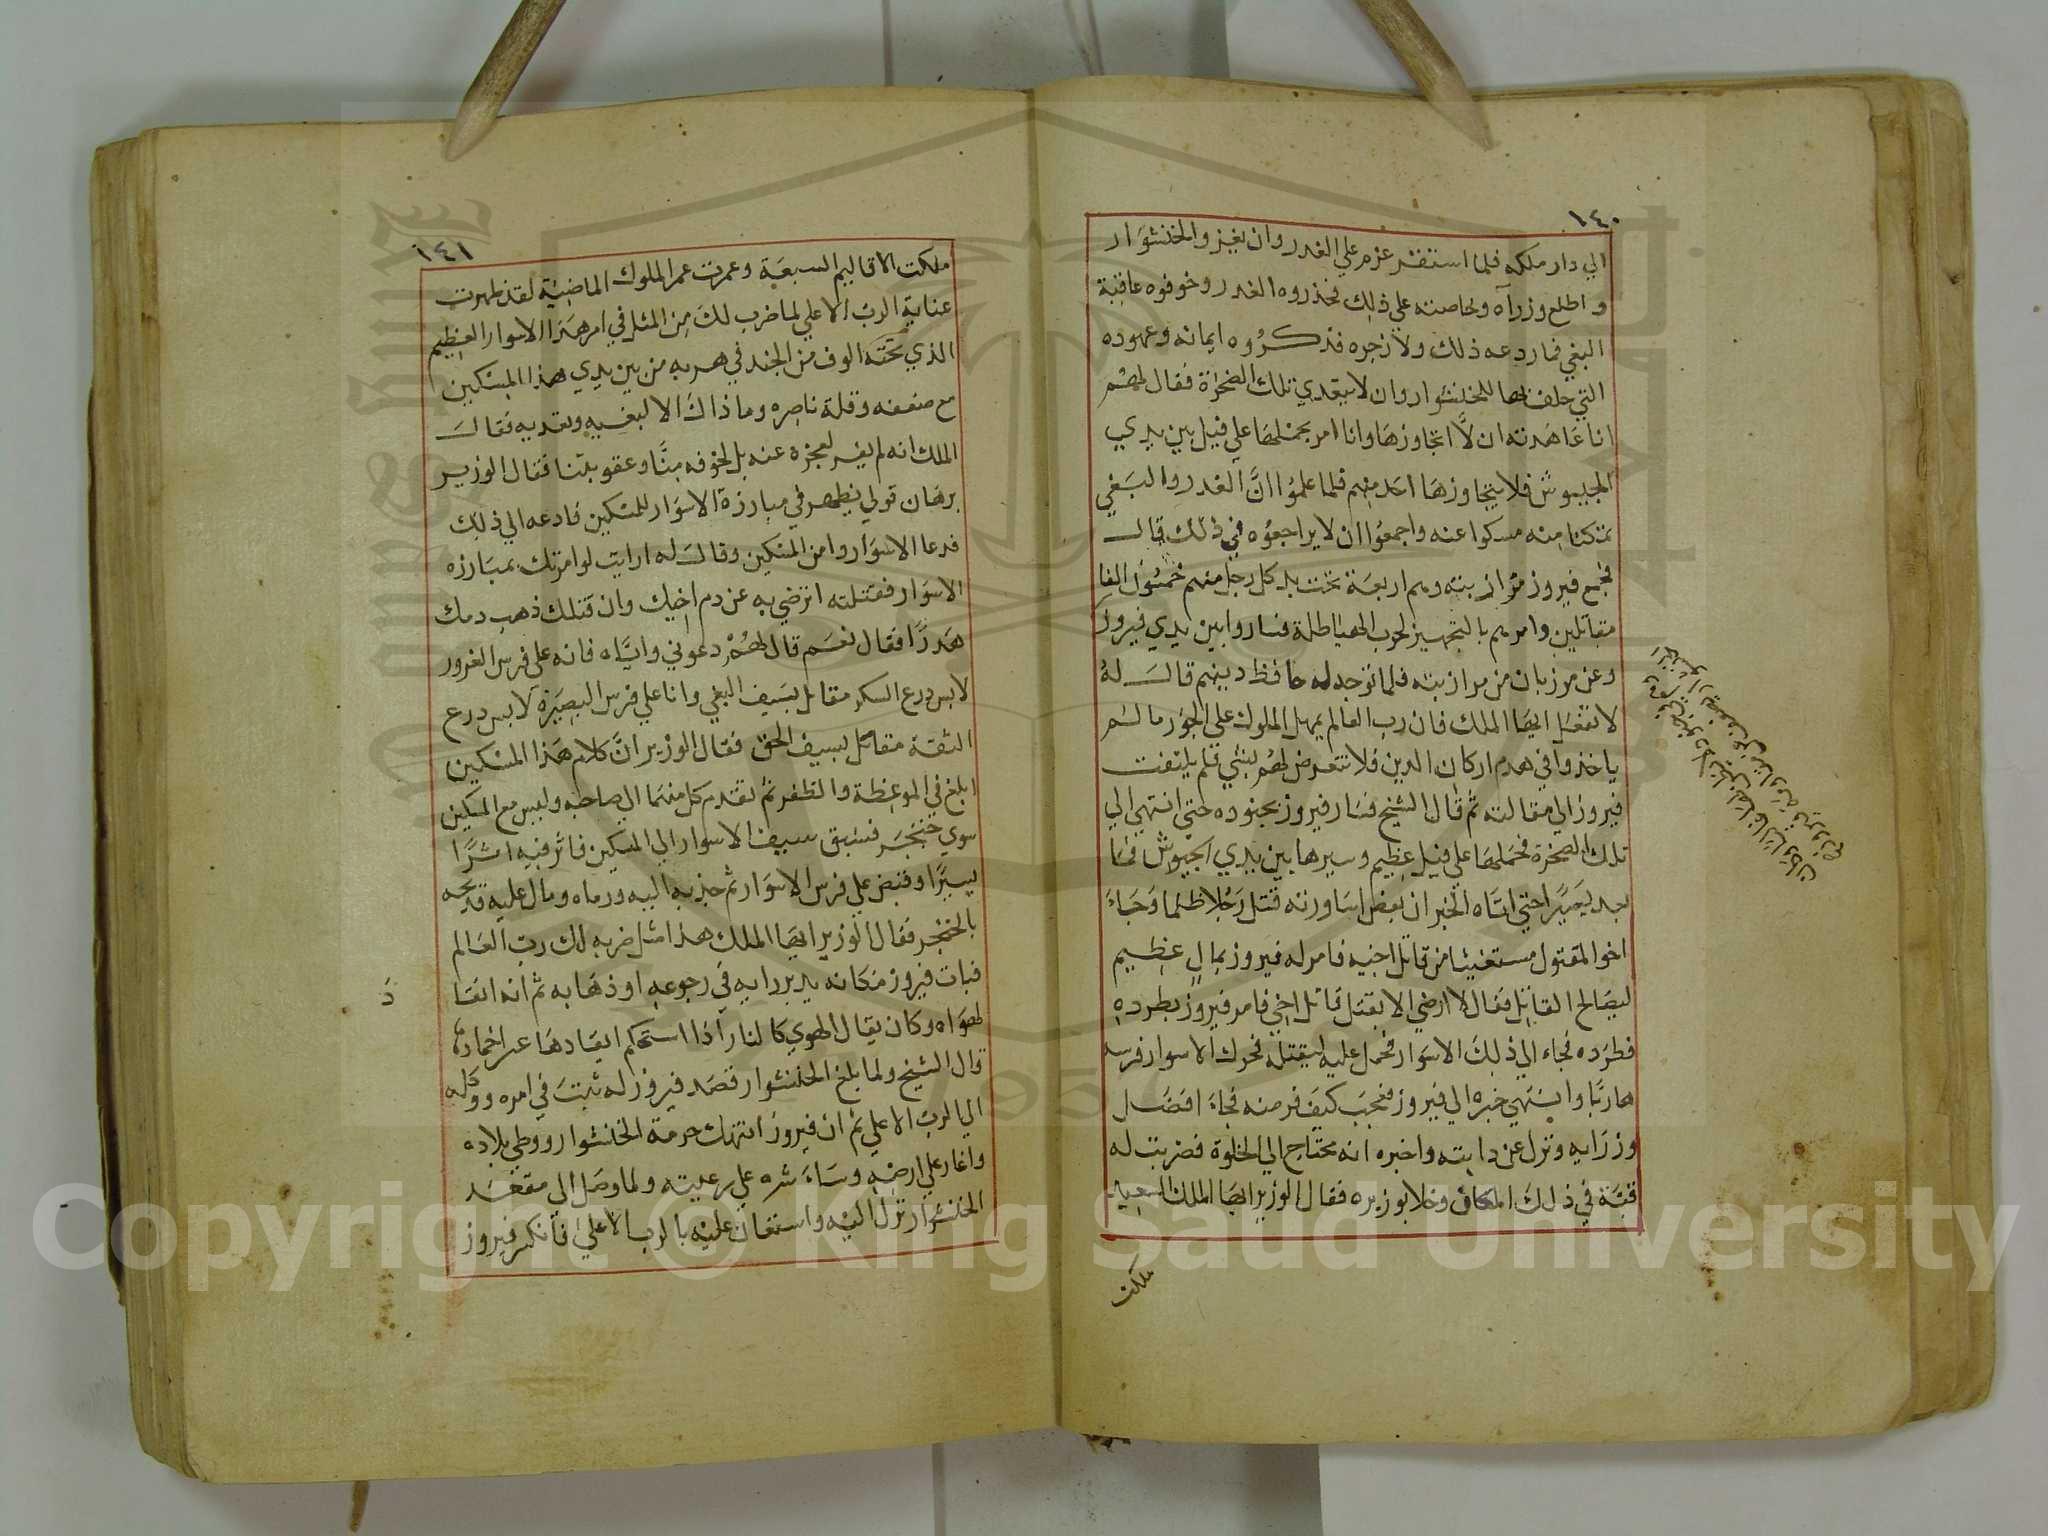 ١٤٠
الي دار ملكه فلما استقر عزم علي الغدر وان يغزو الخنشوار
واطلع وزرآه وخاصته علي ذلك فحذروه الغدر وخوفوه عاقبة
البغي فما ردعه ذلك ولا زجره فذكروه ايمانه وعهوده
التي حلف بها للخنشوار وان لا يتعدي تلك الصخرة فقال لهم
انا عاهدته ان لا اتجاوزها وانا امر بحملها علي فيل بين يدي
الجيوش فلا يتجاوزها احد منهم فلما علموا ان الغدر والبغي
تمكنا منه مسكوا عنه واجمعوا ان لا يراجعوه في ذلك قال
فجمع فيروز مرازبته وهم اربعة تحت يد كل رجل منهم خمسون الفا
مقاتلين وامرهم بالتجهيز لحرب الهياطلة فساروا بين يدي فيروز
وعن مرزبان من مرازبته فلما توجد له حافظ دينهم قال له
لا تفعل ايها الملك فان رب العالم يمهل الملوك علي الجور ما لم
ياخذوا في هدم اركان الدين فلا تتعرض لهم بشي فلم يلتفت
فيروز الي مقالته ثم قال الشيخ فسار فيروز بجنوده حتي انتهي الي
تلك الصخرة فحملها علي فيل عظيم وسيرها بين يدي الجيوش فما
بعد يسيرا حتي اتاه الخبر ان بعض اساورته قتل رجلا ظلما وجاء
اخو المقتول مستغيثا من قاتل اخيه فامر له فيروز بمال عظيم
ليصالح القاتل فقال لا ارضي الا بقتل قاتل اخي فامر فيروز بطرده
فطرده فجاء الي ذلك الاسوار فحمل عليه ليقتله فحرك الاسوار فرسه
هاربا وانتهي خبره الي فيروز فعجب كيف فر منه فجاء افضل
وزرايه ونزل عن دابته واخبره انه محتاج الي الخلوة فضربت له
قبة في ذلك المكان وخلا بوزيره فقال الوزير ايها الملك السعيد
ملكت
١٤١
ملكت الاقاليم السبعة وعمرت عمر الملوك الماضية لقد ظهرت
عناية الرب الاعلي لما ضرب لك من المثل في امر هذا الاسوار العظيم
الذي تحته الوف من الجند في هربه من بين يدي هذا المسكين
مع ضعفه وقلة ناصره وما ذاك الا لبغيه وتعديه فقال
الملك انه لم يفر لعجزه عنه بل لخوفه منا وعقوبتنا فقال الوزير
برهان قولي يظهر في مبارزة الاسوار للمسكين فادعه الي ذلك
فدعا الاسوار وامن المسكين وقال له ارايت لو امرتك بمبارزه
الاسوار فقتلته اترضي به عن دم اخيك وان قتلك ذهب دمك
هدرا فقال نعم قال لهم دعوني واياه فانه علي فرس الغرور
لابس درع السكر مقاتل بسيف البغي وانا علي فرس البصيرة لابس درع
الثقة مقاتل بسيف الحق فقال الوزير ان كلام هذا المسكين
ابلغ في الموعظة والظفر ثم تقدم كل منهما الي صاحبه وليس مع المسكين
سوي خنجر فسبق سيف الاسوار الي المسكين فاثر فيه اثرا
يسيرا وقبض علي فرس الاسوار ثم جذبه اليه ورماه ومال عليه فذبحه
بالخنجر فقال الوزير ايها الملك هذا مثل ضربه لك رب العالم
فبات فيروز مكانه يدبر رايه في رجوعه او ذهابه ثم انه انقا
لهواه وكان يقال الهوي كالنار اذا استحكم ايقادها عسر اخمادها
د
قال الشيخ ولما بلغ الخنشوار قصد فيروز له ثبت في امره ووكله
الي الرب الاعلي ثم ان فيروز انتهك حرمة الخنشوار ووطي بلاده
واغار علي ارضه وساء شره علي رعيته ولما وصل الي مقصد
الخنشوار نزل اليه واستعان عليه بالرب الاعلي فانكسر فيروز